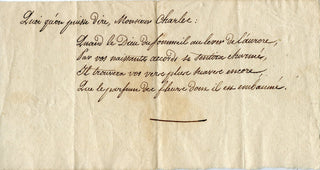 Quoi qu'on puisse dire, Monsieur Charles:
Quand le Dieu du sommeil au lever de l'aurore,
Par vos naissants accords se sentira charmé,
Il trouvera vos vers plus suaves encore,
Que le parfum des fleurs dont il est embaumé.